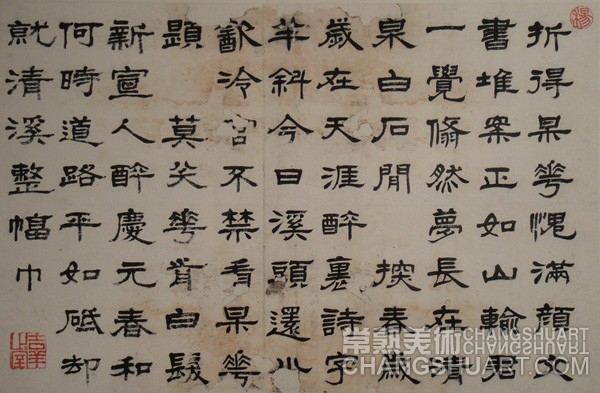 折得呆華愧滿顔文
書堆案正如山輸君
一覺翛然夢長在清
泉白石間 探春歲
歲在天涯醉裏詩字
半斜今日溪頭還小
飲冷官不禁看呆華
題 莫笑華前白髮
新宣人醉慶元春和
何時道路平如砥却
就清溪整幅巾
常熟美術
CHANGSHUART